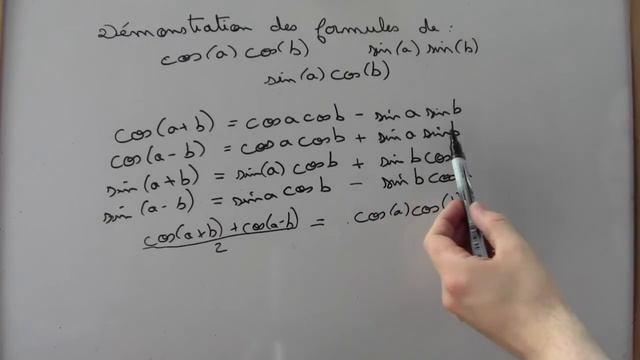 Démonstration des formules de :
cos(a) cos(b) sin(a) sin(b)
sin(a) cos(b)
cos(a+b) = cosa cosb - sina sinb
cos(a-b) = cosa cosb + sina sinb
sin(a+b) = sin(a) cosb + sinb cos
sin(a-b) = sina cosb - sinb cos
cos(a+b) + cos(a-b) / 2 = cos(a) cos(